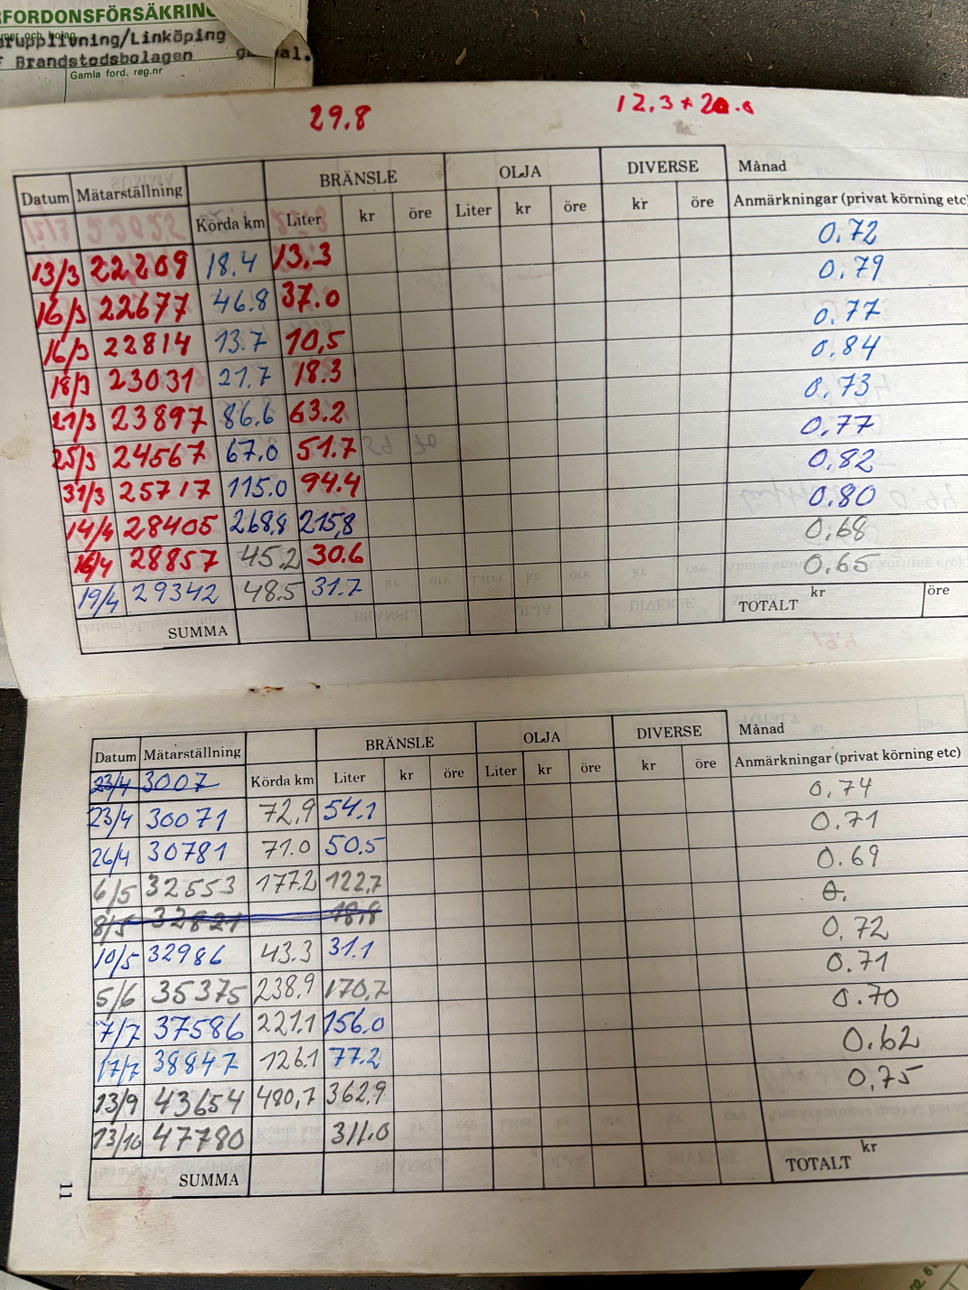 FORDONSFÖRSÄKRING
mer och bolag
eruppliyning/Linköping
F Brandstodsbolagen
Gamla ford. reg.nr
29.8
12.3 +
BRÄNSLE OLJA DIVERSE Månad
Datum Mätarställning Körda km Liter kr öre Liter kr öre kr öre Anmärkningar (privat körning etc
0.72
13/3 22209 18.4 13.3 0.79
16/3 22677 46.8 37.0 0.77
16/3 22814 13.7 10,5 0.84
18/3 23031 21.7 18.3 0.73
21/3 23897 86.6 63.2 0,77
25/3 24567 67.0 51.7 0,82
31/3 25717 115.0 94.4 0,80
14/4 28405 268,8 215,8 0,68
16/4 28857 45.2 30.6 0,65
19/4 29342 48.5 31.7
SUMMA TOTALT kr öre
BRÄNSLE OLJA DIVERSE Månad
Datum Mätarställning Körda km Liter kr öre Liter kr öre kr öre Anmärkningar (privat körning etc)
23/4 3007 0,74
23/4 30071 72,9 54.1 0.71
26/4 30781 71.0 50.5 0.69
6/5 32553 177.2 122,7 0.
8/5 32821 18,8 0,72
10/5 32986 43.3 31.1 0.71
5/6 35375 238,9 170,7 0.70
7/7 37586 221.1 156.0 0.62
17/7 38847 126.1 77.2 0,75
13/9 43654 480,7 362,9
13/10 47780 311.0
SUMMA TOTALT kr
11